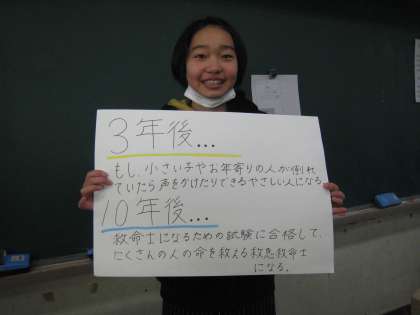 3年後...
もし、小さい子やお年寄りの人が倒れ
ていたら声をかけたりできるやさしい人になる
10年後...
救命士になるための試験に合格して、
たくさんの人の命を救える救急救命士
になる。